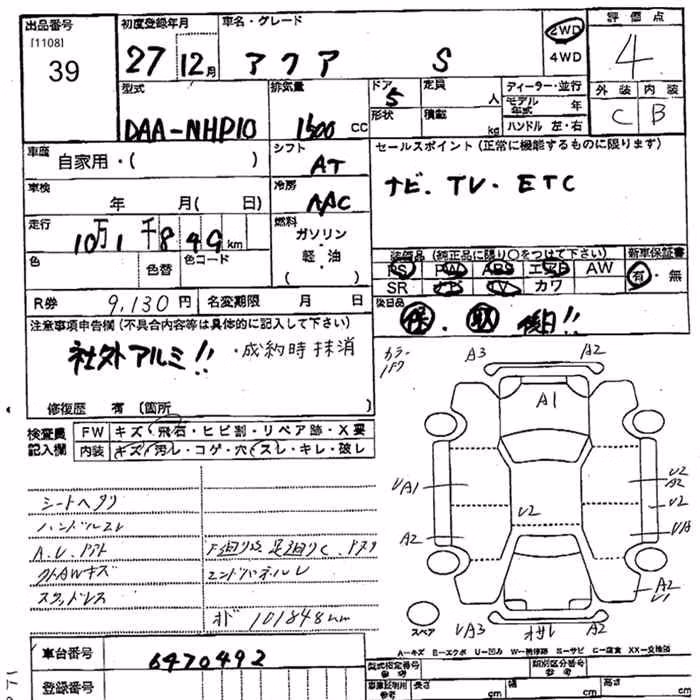 出品番号 初度登録年月 車名・グレード 評価点
[1108]
39
27 12月 アクア S 2WD 4WD 4
型式 排気量 ドア 定員 ディーラー・並行 外装 内装
5 人 モデル年式 年
DAA-NHP10 1500 CC 形状 積載 kg ハンドル 左・右 C B
車歴 自家用・( ) シフト AT セールスポイント (正常に機能するものに限ります)
車検 年 月( 日) 冷房 AAC ナビ. TV. ETC
走行 10万1千849km 燃料 ガソリン・軽・油 ( )
色 色替 色コード 装備品 (純正品に限り○をつけて下さい) 新車保証書
PS PW ABS エアB AW 有・無
SR ナビ TV カワ
R券 9,130円 名変期限 月 日 後日品
保・取 後日!!
注意事項申告欄 (不具合内容等は具体的に記入して下さい)
社外アルミ!! ・成約時抹消
修復歴 有 (箇所 )
検査員記入欄 FW キズ・飛石・ヒビ割・リペア跡・X要
内装 キズ・汚レ・コゲ・穴・スレ・キレ・破レ
カラー 1F7 A3 A2
A1
UA1 U2 A2
U2 U2
A2 UA
A2 U1
スペア UA3 A2
シートヘタリ
ハンドルスレ
エンドパネルU
スタッドレス
オド 101848km
A-キズ E-エクボ U-凹み W-補修跡 S-サビ C-腐食 XX-交換済
車台番号 6470492
型式指定番号 参考 類別区分番号 参考
登録番号 車庫証明用 参考 長さ cm 幅 cm 高さ cm